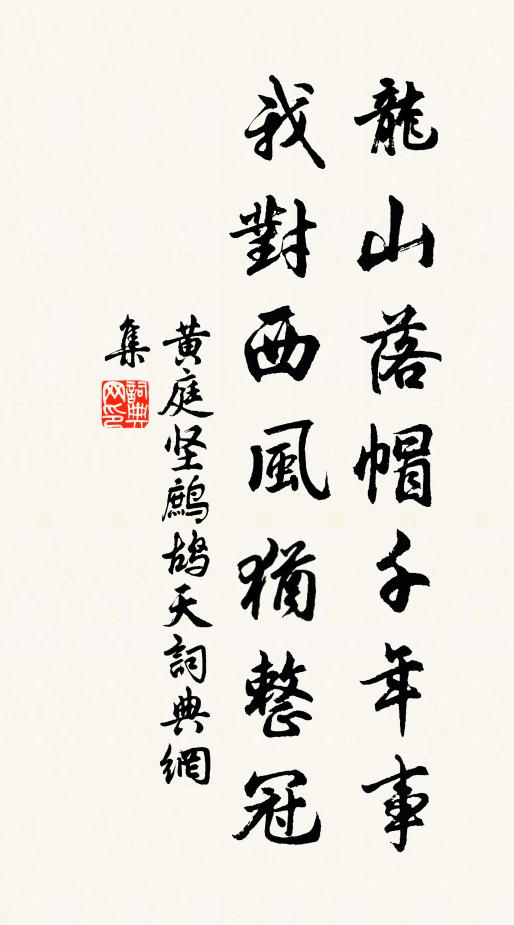 龍山落帽千年事
我對西風猶整冠
黄庭坚鷓鴣天詞典網
集
詞典網印